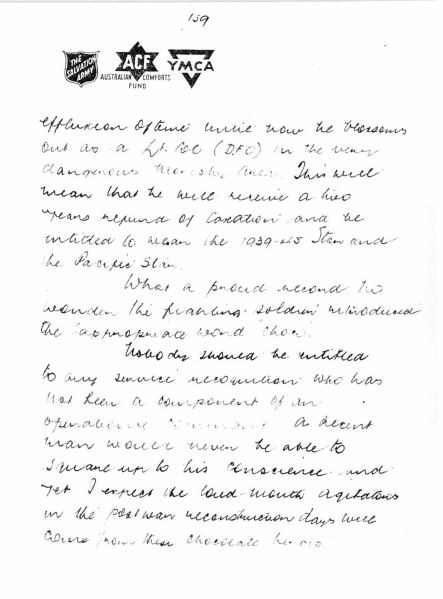 159
THE SALVATION ARMY
ACF
AUSTRALIAN COMFORTS FUND
YMCA
effluxion of time until now he blossoms
out as a Lt. Col (DFO) in the very
dangerous Area. This will
mean that he will receive a two
years refund of taxation and be
entitled to wear the 1939-45 Star and
the Pacific Star.
What a proud record No
wonder the fighting soldier introduced
the appropriate word "choco".
Nobody should be entitled
to any service recognition who has
not been a component of an
operational command. A decent
man would never be able to
square up to his conscience and
yet I expect the loud-mouth agitators
in the post war reconstruction days will
come from these chocolate heroes